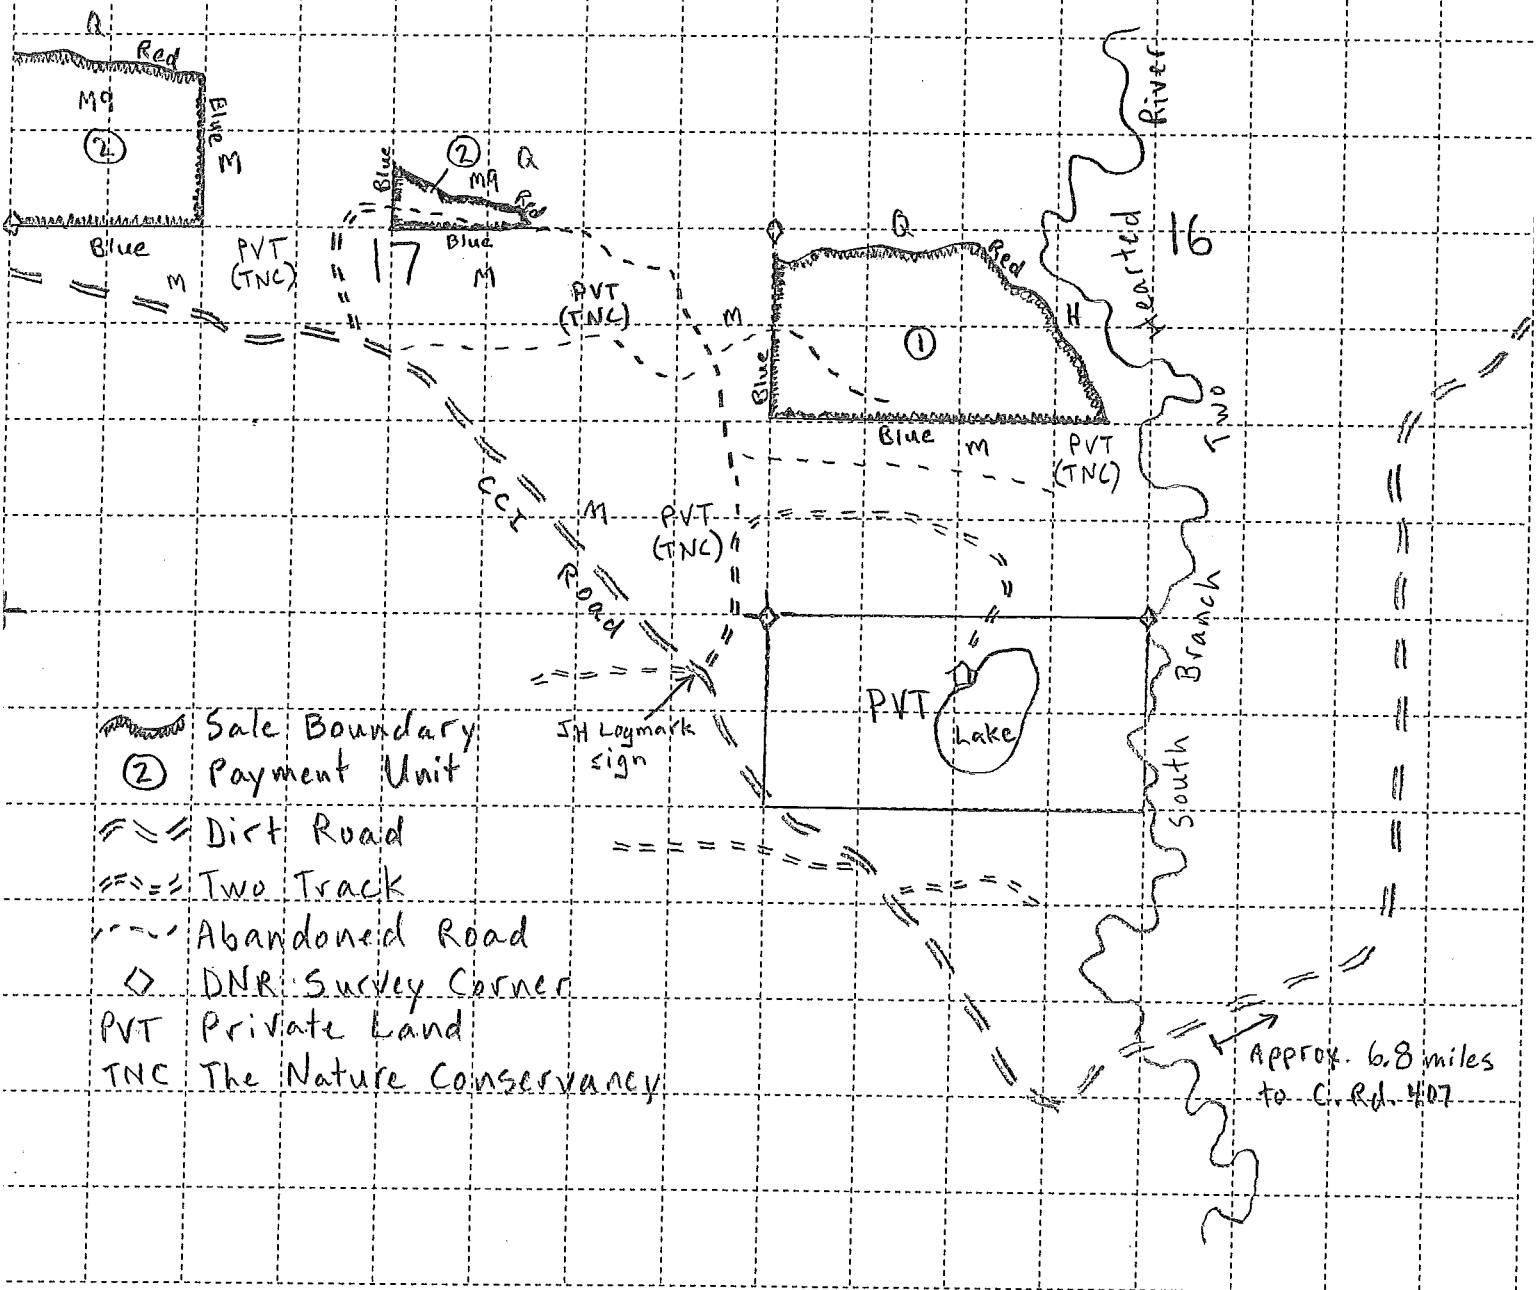 Q
Red
M9
2
Blue
M
Blue
M
PVT
(TNC)
Blue
2
Q
M9
Red
Blue
17
M
PVT
(TNC)
M
Q
Red
H
1
Blue
Blue
M
PVT
(TNC)
16
South Branch Two Hearted River
CCI Road
M
PVT
(TNC)
JH Logmark
sign
PVT
Lake
Approx. 6.8 miles
to C. Rd. 407
Sale Boundary
2 Payment Unit
Dirt Road
Two Track
Abandoned Road
DNR Survey Corner
PVT Private Land
TNC The Nature Conservancy